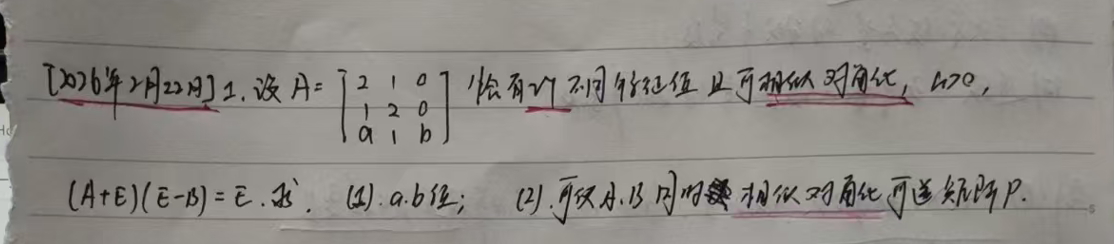 [2026年2月22日] 1. 设 A= [2 1 0 / 1 2 0 / a 1 b] 恰有2个不同特征值且可相似对角化, a>0,
(A+E)(E-B)=E. 求. (1). a.b值; (2). 可使A.B同时相似对角化可逆矩阵P.